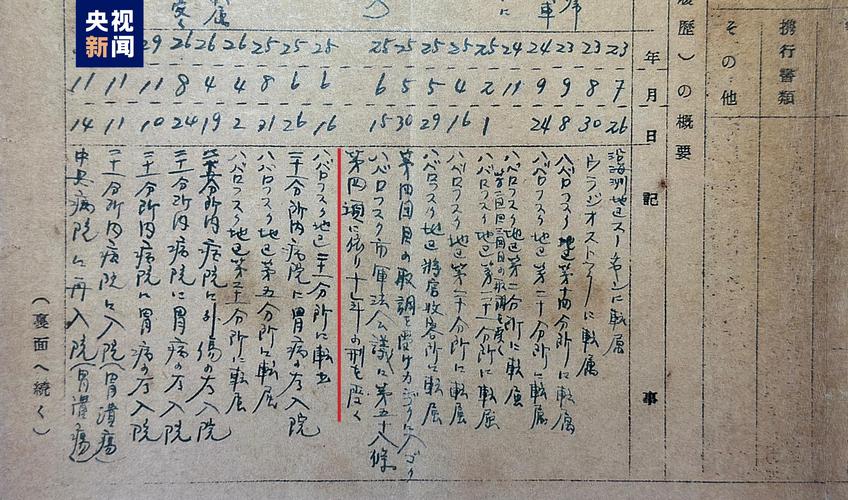 央视
新闻
携行書類
その他
履歴)の概要
年月日
記事
23 7 26 沿海州地区スーチャンに転属
23 8 30 ウラジオストックに転属
23 9 8 ハバロフスク地区第十四分所に転属
24 9 24 ハバロフスク地区第二十分所に転属
24 11 ハバロフスク地区第一分所に転属
25 2 1 ハバロフスク地区第二十一分所に転属
25 4 16 ハバロフスク地区第二十分所に転属
25 5 29 ハバロフスク地区将官收容所に転属
25 5 30 第四回目の取調を受け
25 6 15 ハバロフスク市軍法会議に第五十八條
第四項に依り十年の刑を受く
25 6 16 ハバロフスク地区二十一分所に転出
25 6 26 二十一分所内病院に胃病の為入院
25 8 21 ハバロフスク地区第五分所に転属
26 4 2 ハバロフスク地区第二十一分所に転属
26 4 19 分所内病院に外傷の為入院
26 8 24 二十一分所内病院に胃病の為入院
29 11 10 二十一分所内病院に胃病の為入院
11 11 二十一分所内病院に入院(胃潰瘍)
11 14 中央病院に再入院(胃潰瘍)
(裏面へ続く)